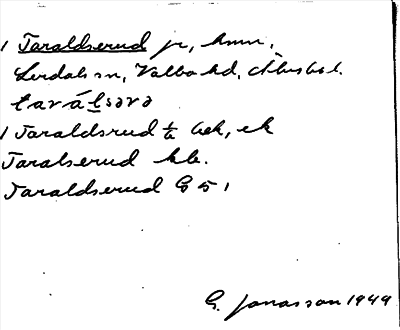 1 Taraldserud jr, hmn,
Lerdals sn, Valbo hd, Älvsb. l.
taràḷsərə
1 Taraldsrud ½ hek, ek
Taralserud kb.
Taraldserud G 5 1
G. Jonasson 1949